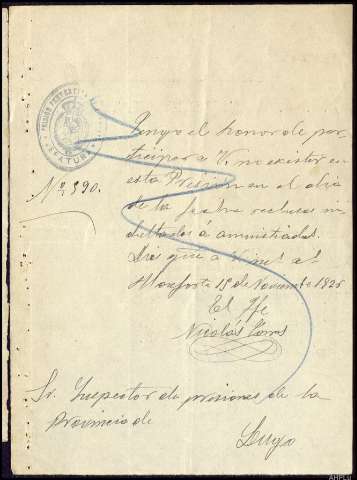 PRISIÓN
JEFATURA
Tengo el honor de par-
ticipar a V. no existir en
esta Prisión en el día
de la fecha reclusos in-
dultados ó amnistiados.
Nº 390.
Dios gue a V. ms. as
Monforte 15 de Noviembre 1926
El Jfe
Nicolás
Sr. Inspector de prisiones de la
Provincia de
Lugo
AHPLu